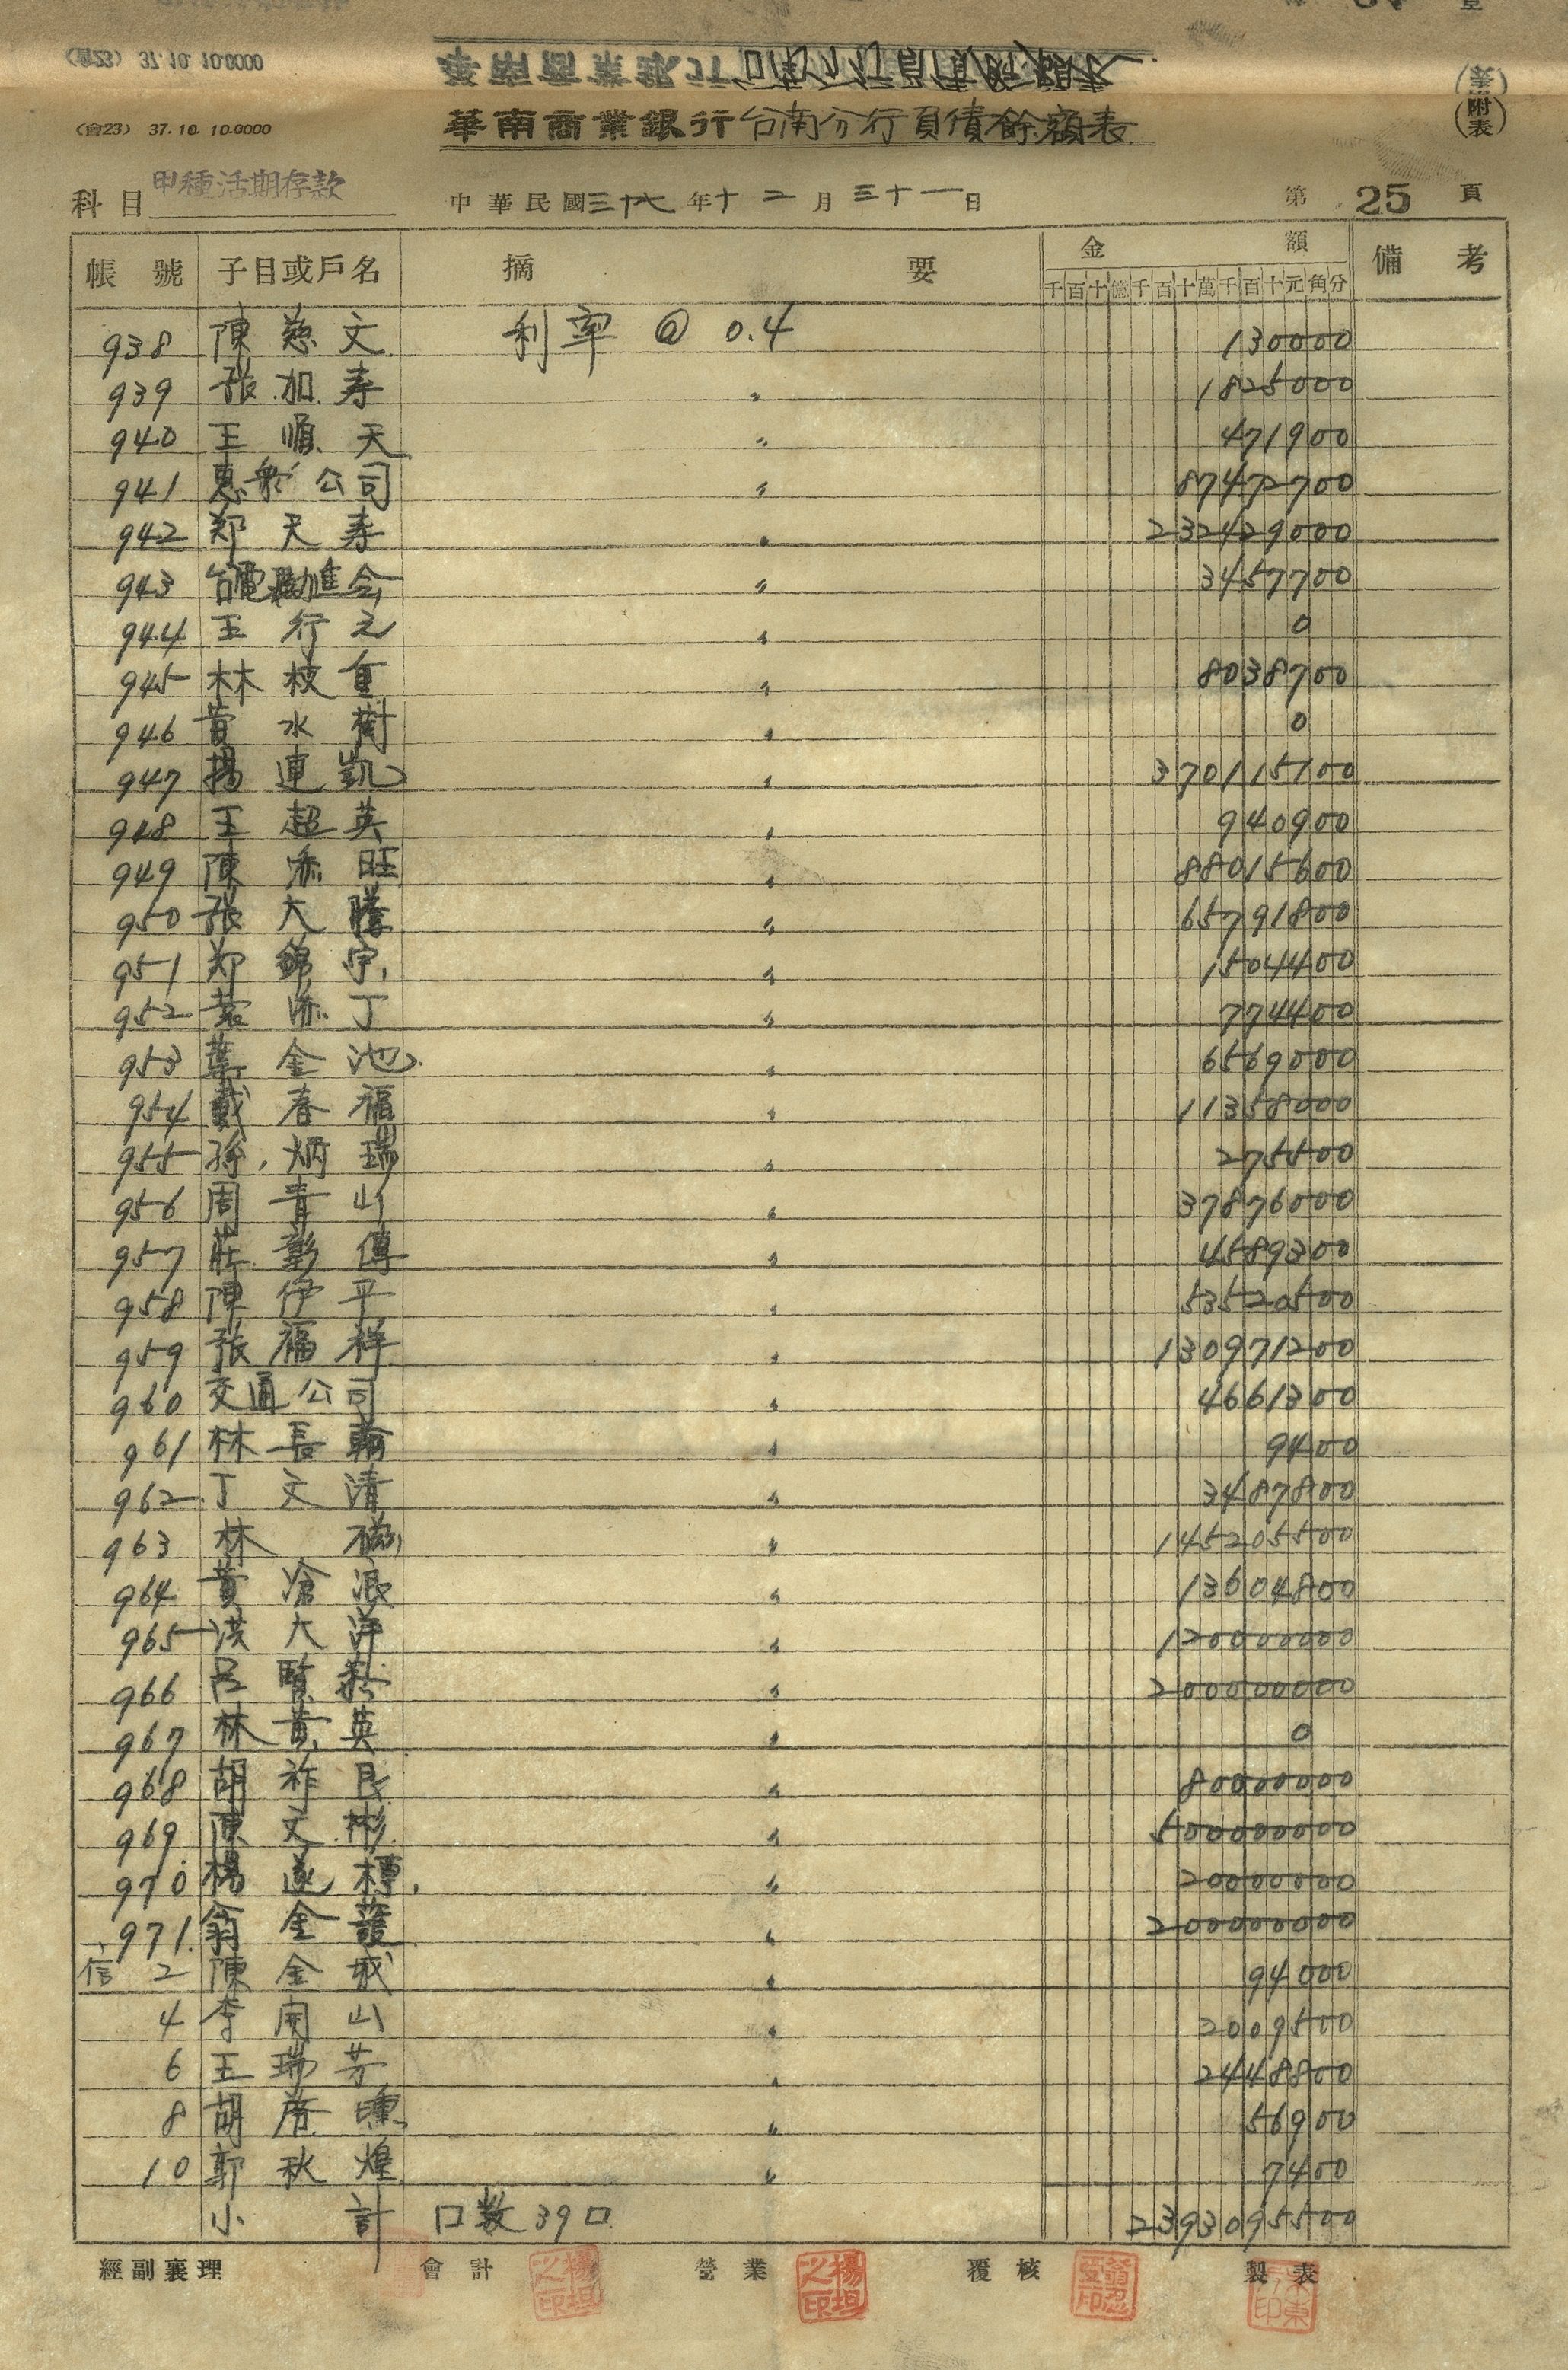 (會23) 37.10.10.0000
華南商業銀行台南分行負債餘額表
(附表)
科目 甲種活期存款 中華民國三十七年十二月三十一日 第 25 頁
帳號 子目或戶名 摘要 金額 備考
千百十億千百十萬千百十元角分
938 陳慈文 利率 @ 0.4 130000
939 張加寿 〃 1825000
940 王順天 〃 471900
941 惠彰公司 〃 87472700
942 郑天寿 〃 232429000
943 台電勵進会 〃 3457700
944 王行之 〃 0
945 林枝重 〃 8038700
946 黃水樹 〃 0
947 楊連凱 〃 370115700
948 王超英 〃 940900
949 陳添旺 〃 88015600
950 張大騰 〃 65791800
951 郑錦宇 〃 1504400
952 添丁 〃 774400
953 葉金池 〃 6569000
954 戴春福 〃 11358000
955 孫炳瑞 〃 275500
956 周青山 〃 37876000
957 莊彰傳 〃 4589300
958 陳伊平 〃 53520500
959 張福祥 〃 130971200
960 交通公司 〃 4661300
961 林長 〃 9400
962 丁文清 〃 3487800
963 林磁 〃 145205500
964 黃滄浪 〃 13604800
965 洪大洋 〃 120000000
966 呂賢 〃 200000000
967 林黃英 〃 0
968 胡祚民 〃 80000000
969 陳文彬 〃 500000000
970 楊遂標 〃 20000000
971 翁金護 〃 200000000
信 2 陳金城 〃 94000
4 李開山 〃 2009500
6 王瑞芳 〃 2448800
8 胡 〃 56900
10 郭秋煌 〃 7400
小計 口数39口 2393095500
經副襄理 會計 營業 覆核 製表
楊坦之印 楊坦之印